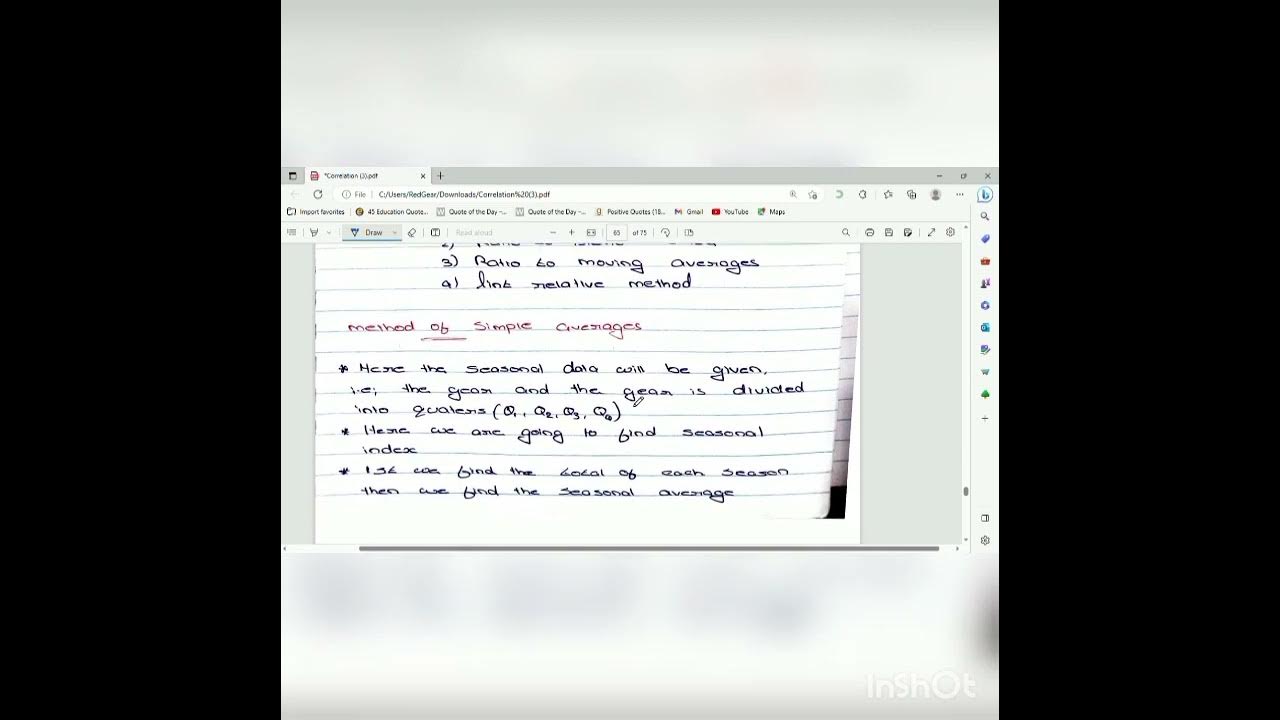 *Correlation (3).pdf
File C:/Users/RedGear/Downloads/Correlation%20(3).pdf
Import favorites 45 Education Quote... Quote of the Day -... Quote of the Day -... Positive Quotes (18... Gmail YouTube Maps
Draw Read aloud 65 of 75
3) Ratio to moving averages
4) link relative method
method of Simple averages
* Here the seasonal data will be given,
i.e; the year and the year is divided
into quaters (Q1, Q2, Q3, Q4)
* Here we are going to find seasonal
index
* 1st we find the total of each season
then we find the seasonal average
InShOt